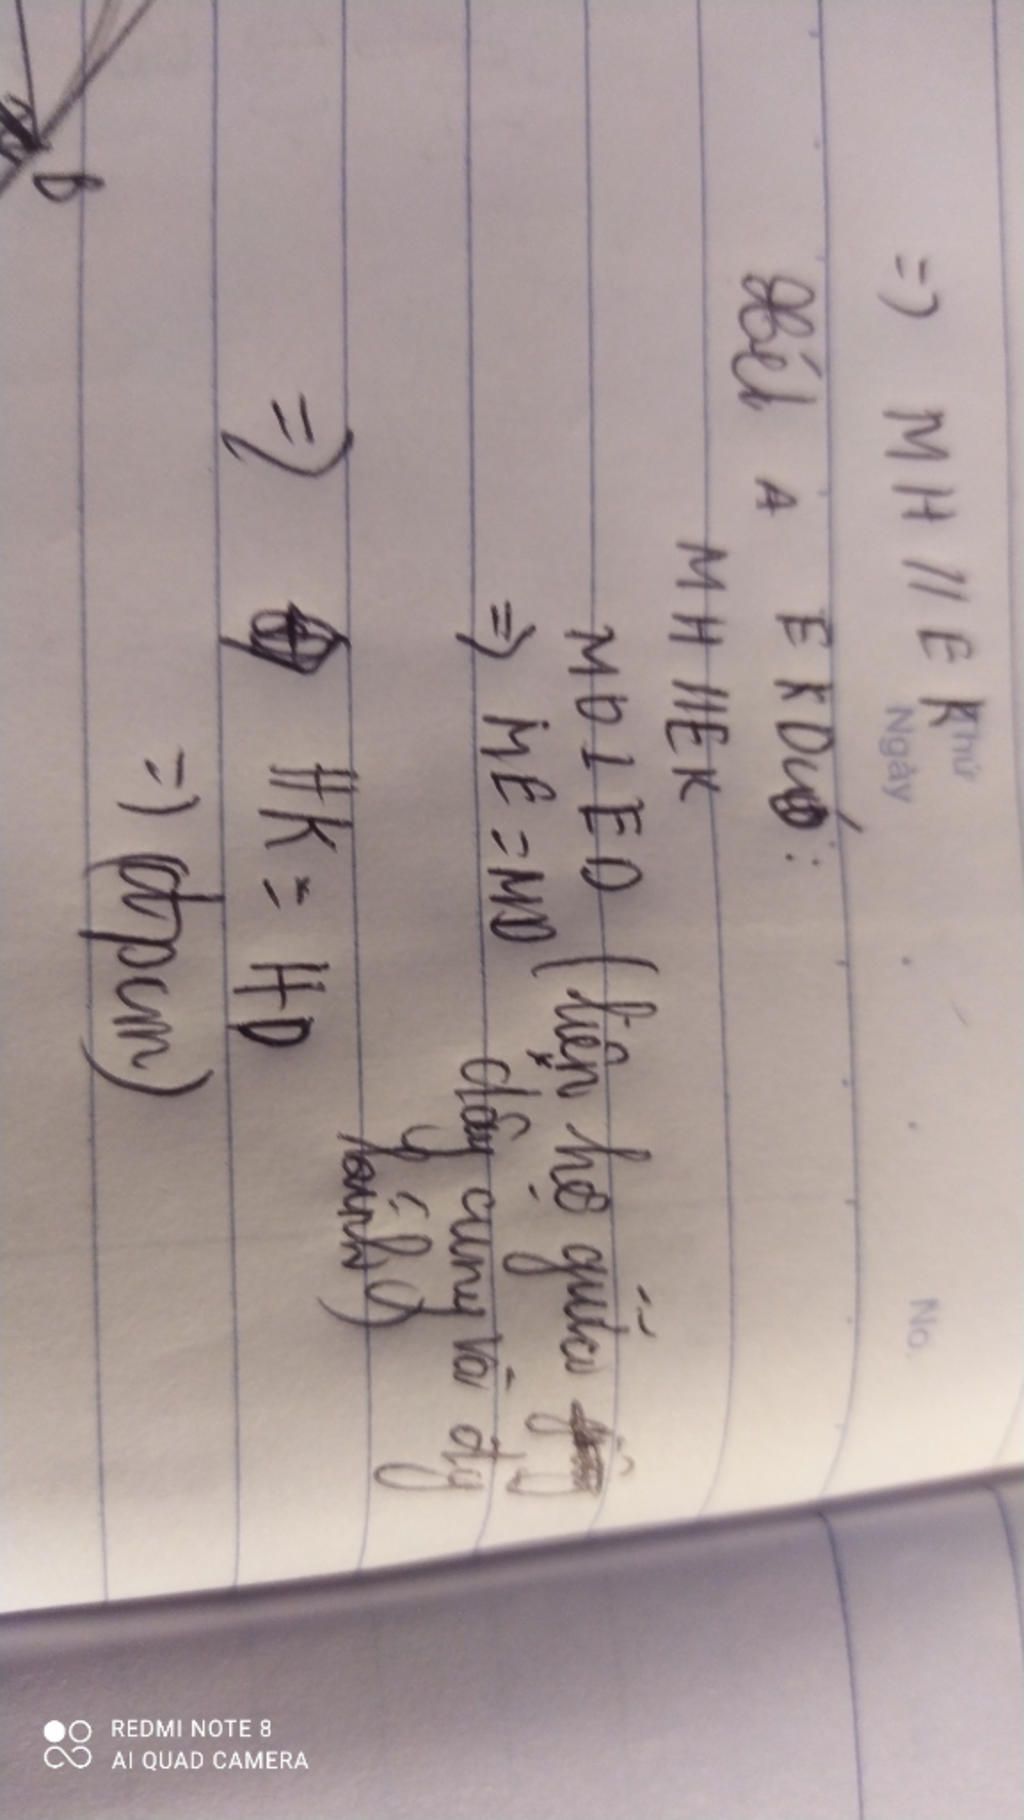 Thứ
Ngày
No.
=) MH // EK
Xét Δ EKD có:
MH // EK
MO ⊥ ED (liên hệ giữa
=) ME = MD
dây cung và đg
kính)
=) HK = HD
=) (đpcm)
B
REDMI NOTE 8
AI QUAD CAMERA